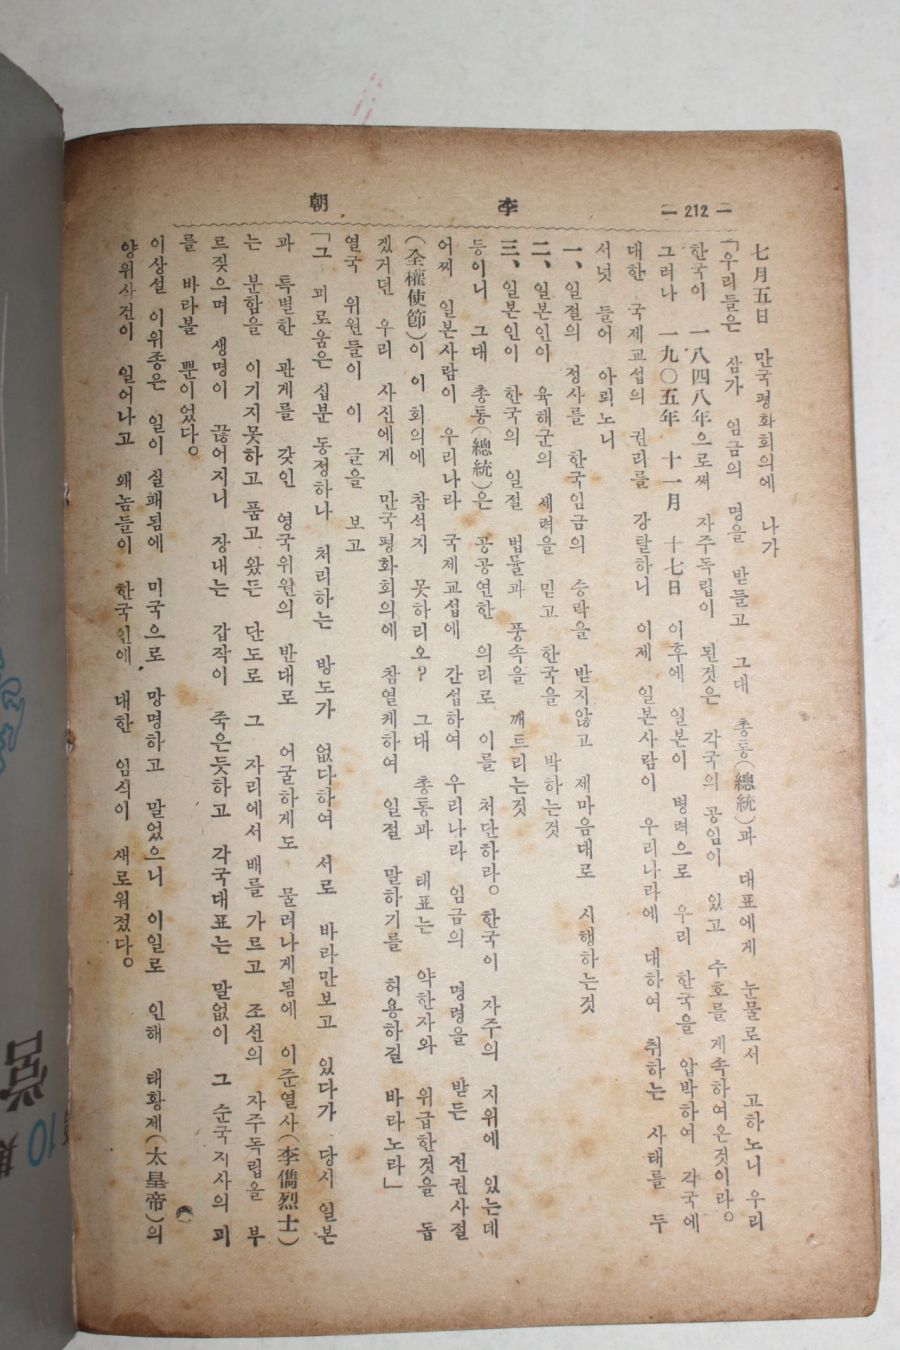 — 212 —
李朝
七月五日 만국평화회의에 나가
「우리들은 삼가 임금의 명을 받들고 그대 총통(總統)과 대표에게 눈물로서 고하노니 우리
한국이 一八四八年으로써 자주독립이 된것은 각국의 공임이 있고 수호를 계속하여온것이라。
그러나 一九〇五年 十一月 十七日 이후에 일본이 병력으로 우리 한국을 압박하여 각국에
대한 국제교섭의 권리를 강탈하니 이제 일본사람이 우리나라에 대하여 취하는 사태를 두
서넛 들어 아뢰노니
一、일절의 정사를 한국임금의 승락을 받지않고 제마음대로 시행하는것
二、일본인이 육해군의 세력을 믿고 한국을 박하는것
三、일본인이 한국의 일절 법물과 풍속을 깨트리는것
등이니 그대 총통(總統)은 공공연한 의리로 이를 처단하라。한국이 자주의 지위에 있는데
어찌 일본사람이 우리나라 국제교섭에 간섭하여 우리나라 임금의 명령을 받든 전권사절
(全權使節)이 이 회의에 참석지 못하리오? 그대 총통과 대표는 약한자와 위급한것을 돕
겠거던 우리 사신에게 만국평화회의에 참열케하여 일절 말하기를 허용하길 바라노라」
열국 위원들이 이 글을 보고
「그 괴로움은 십분 동정하나 처리하는 방도가 없다하여 서로 바라만보고 있다가 당시 일본
과 특별한 관계를 갖인 영국위원의 반대로 어굴하게도 물러나게됨에 이준열사(李儁烈士)
는 분함을 이기지못하고 품고 왔든 단도로 그 자리에서 배를 가르고 조선의 자주독립을 부
르짖으며 생명이 끊어지니 장내는 갑작이 죽은듯하고 각국대표는 말없이 그 순국지사의 괴
를 바라볼 뿐이었다。
이상설 이위종은 일이 실패됨에 미국으로 망명하고 말었으니 이일로 인해 태황제(太皇帝)의
양위사건이 일어나고 왜놈들이 한국인에 대한 임식이 새로워젔다。
10